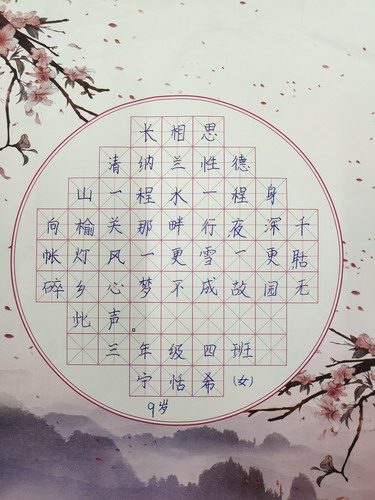 长相思
清纳兰性德
山一程水一程身
向榆关那畔行夜深千
帐灯风一更雪一更聒
碎乡心梦不成故园无
此声。
三年级四班
宁恬希(女)
9岁